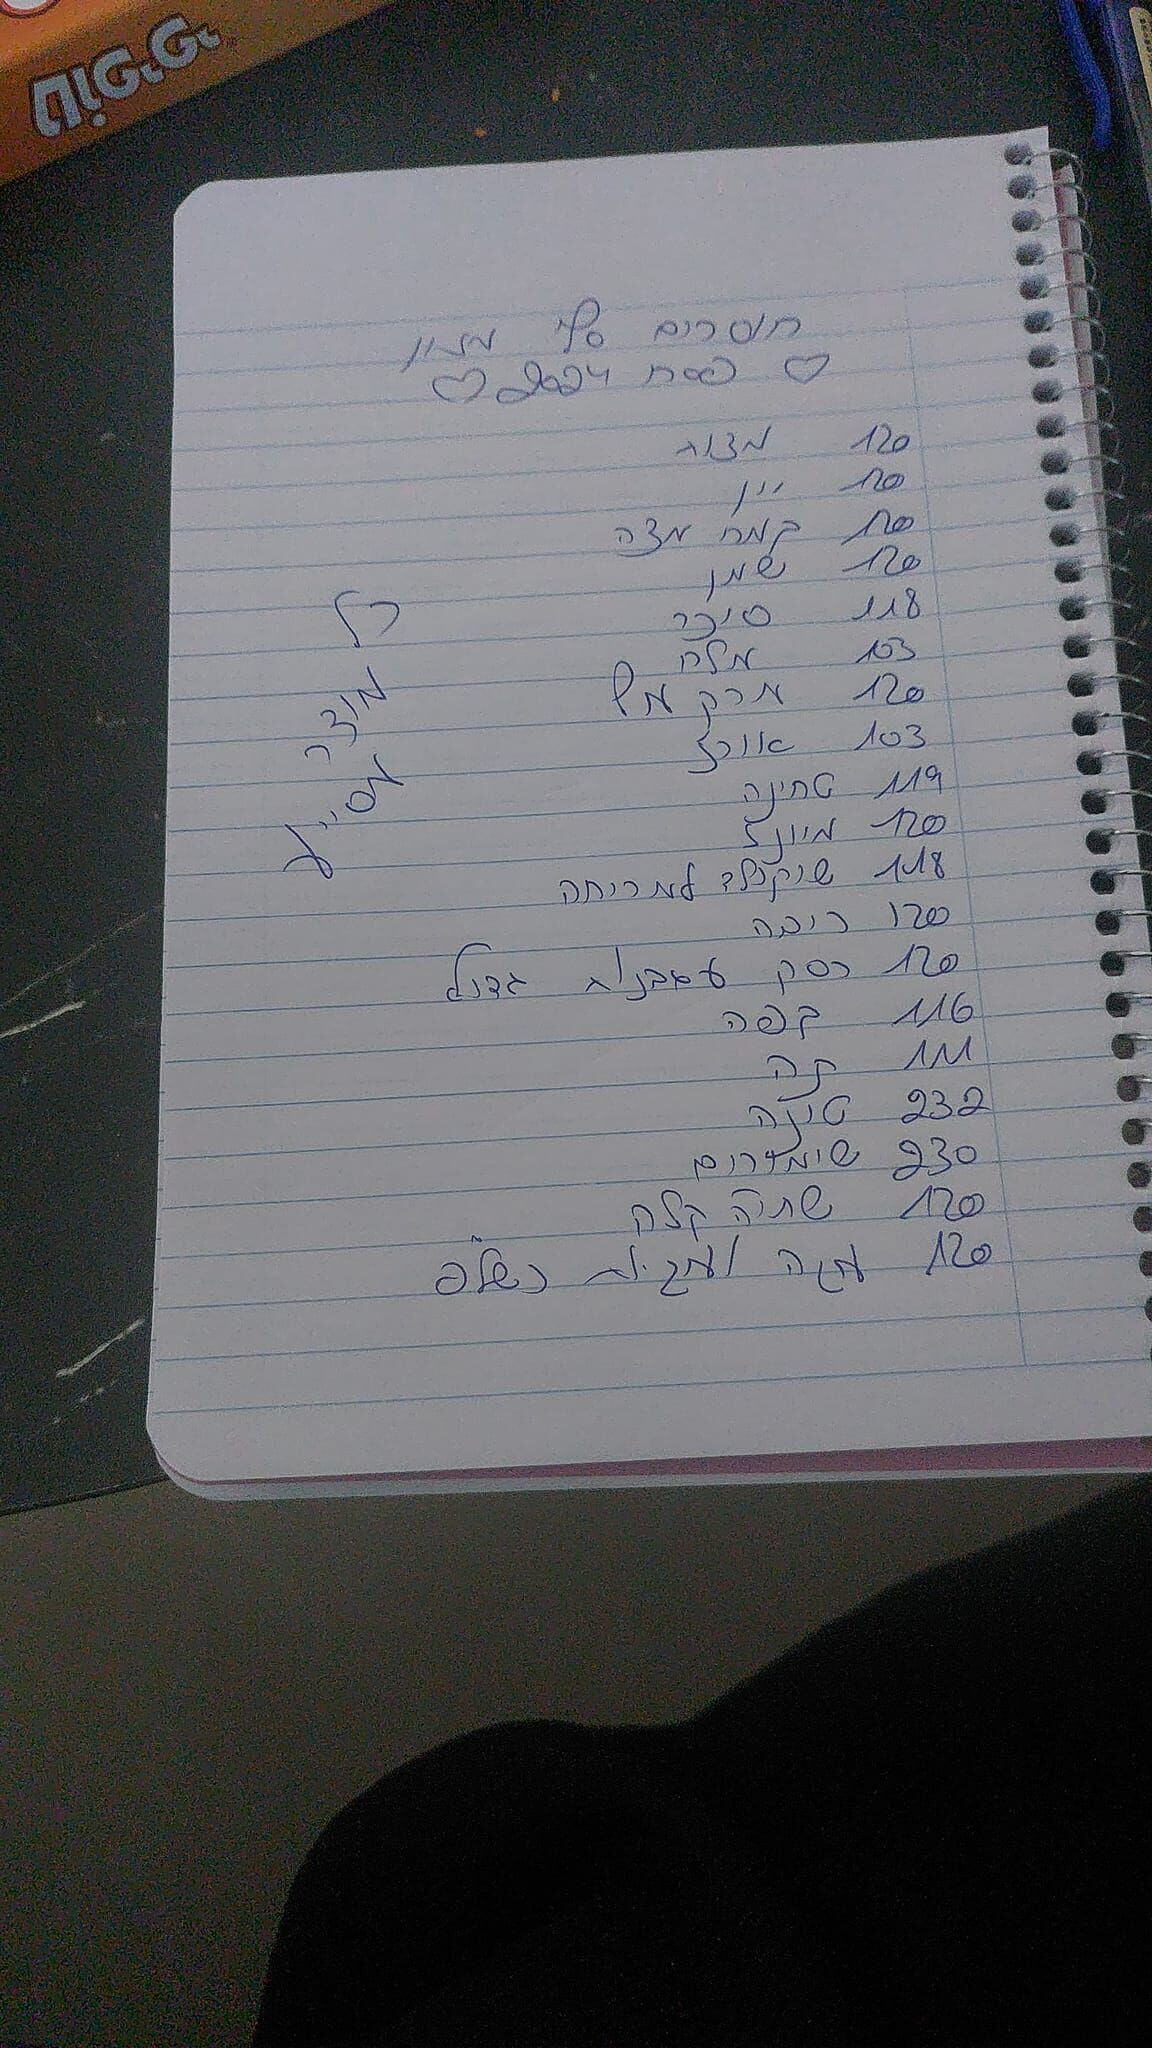 חוסרים סלי מזון
♡ פסח 2024 ♡
120 מצות
120 יין
120 קמח מצה
120 שמן
118 סוכר
103 מלח
120 מרק עוף
103 אורז
119 טחינה
120 מיונז
118 שוקולד למריחה
120 ריבה
120 רסק עגבניות גדול
116 קפה
111 תה
232 טונה
230 שימורים
120 שתיה קלה
120 עוגה /עוגיות כשל"פ
כל
מוצר
מסייע